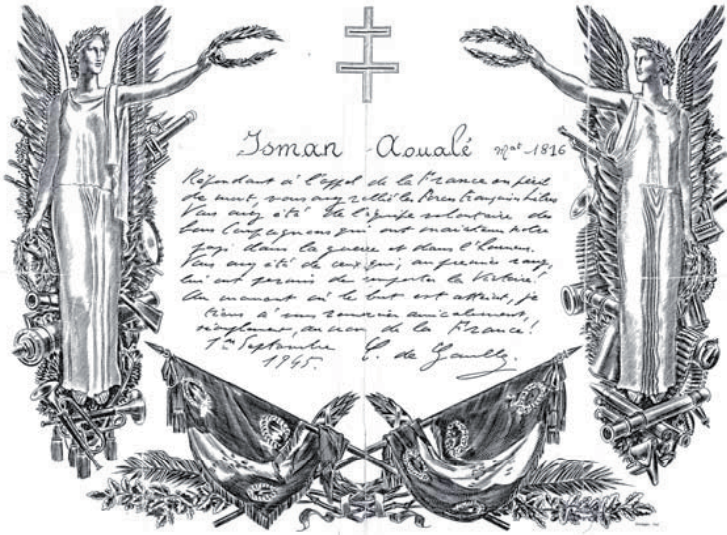 Isman Aoualé Mat 1816
Répondant à l'appel de la France en péril
de mort, vous avez rallié les Forces françaises libres.
Vous avez été de l'équipe volontaire des
bons compagnons qui ont maintenu notre
pays dans la guerre et dans l'honneur.
Vous avez été de ceux qui, au premier rang,
lui ont permis de remporter la Victoire!
Au moment où le but est atteint, je
tiens à vous remercier amicalement,
simplement, au nom de la France!
1er Septembre
1945. C. de Gaulle.